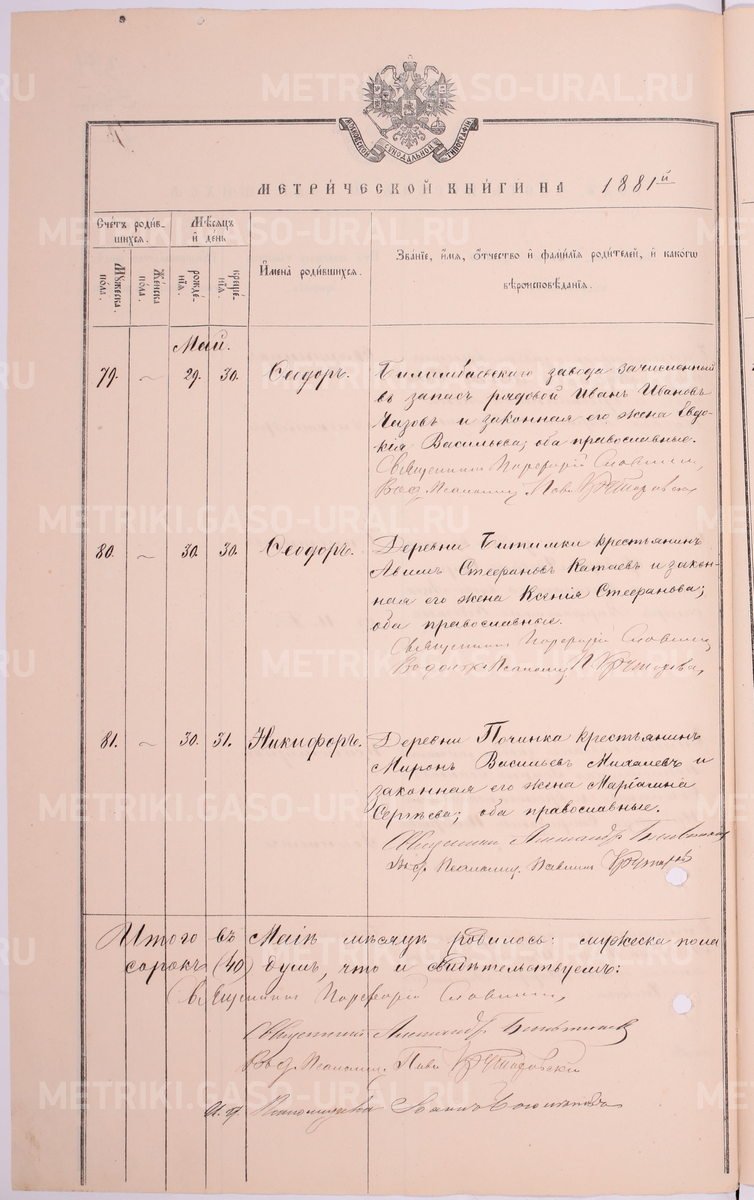 МОСКОВСКОЙ СѴНОДАЛЬНОЙ ТИПОГРАФІИ
МЕТРИ́ЧЕСКОЙ КНИ́ГИ НА 1881й
Сче́тъ роди́в-
шихся.
Мѣ́сяцъ
и҆ день
Му́жеска
по́ла.
Же́нска
по́ла.
рожде́-
нїя.
креще́-
нїя.
И҆мена̀ роди́вшихся.
Зва́нїе, и҆́мя, ѻ҆́тчество и҆ фами́лїя роди́телей, и҆ како́гѡ
вѣроисповѣ́данїя.
Май.
79. ~ 29. 30. Ѳеодоръ. Билимбаевскаго завода зачисленный
въ запасъ рядовой Иванъ Ивановъ
Чазовъ и законная его жена Евдо-
кія Васильева; оба православные.
Священникъ Порфирій Словцовъ,
Псаломщ. Павл.
80. ~ 30. 30. Ѳеодоръ. Деревни Битимки крестьянинъ
Авимъ Стефановъ Катаевъ и закон-
ная его жена Ксенія Стефанова;
оба православные.
Священникъ Порфирій Словцовъ
Псаломщ. П.
81. ~ 30. 31. Никифоръ. Деревни Починка крестьянинъ
Миронъ Васильевъ Михалевъ и
законная его жена Маріамна
Сергѣева; оба православные.
Священникъ Александръ
Псаломщ. Павлинъ
Итого въ Маіѣ мѣсяцѣ родилось: мужеска пола
сорокъ (40) душъ, что и свидѣтельствуемъ:
Священникъ Порфирій Словцовъ,
Священникъ Александръ
Псаломщ. Павл.
И. д. Псаломщика
METRIKI.GASO-URAL.RU